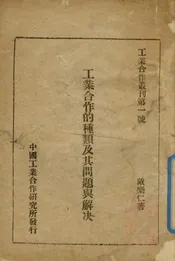 工業合作叢刊第一號
工業合作的種類及其問題與解决
戴樂仁著
中國工業合作研究所發行